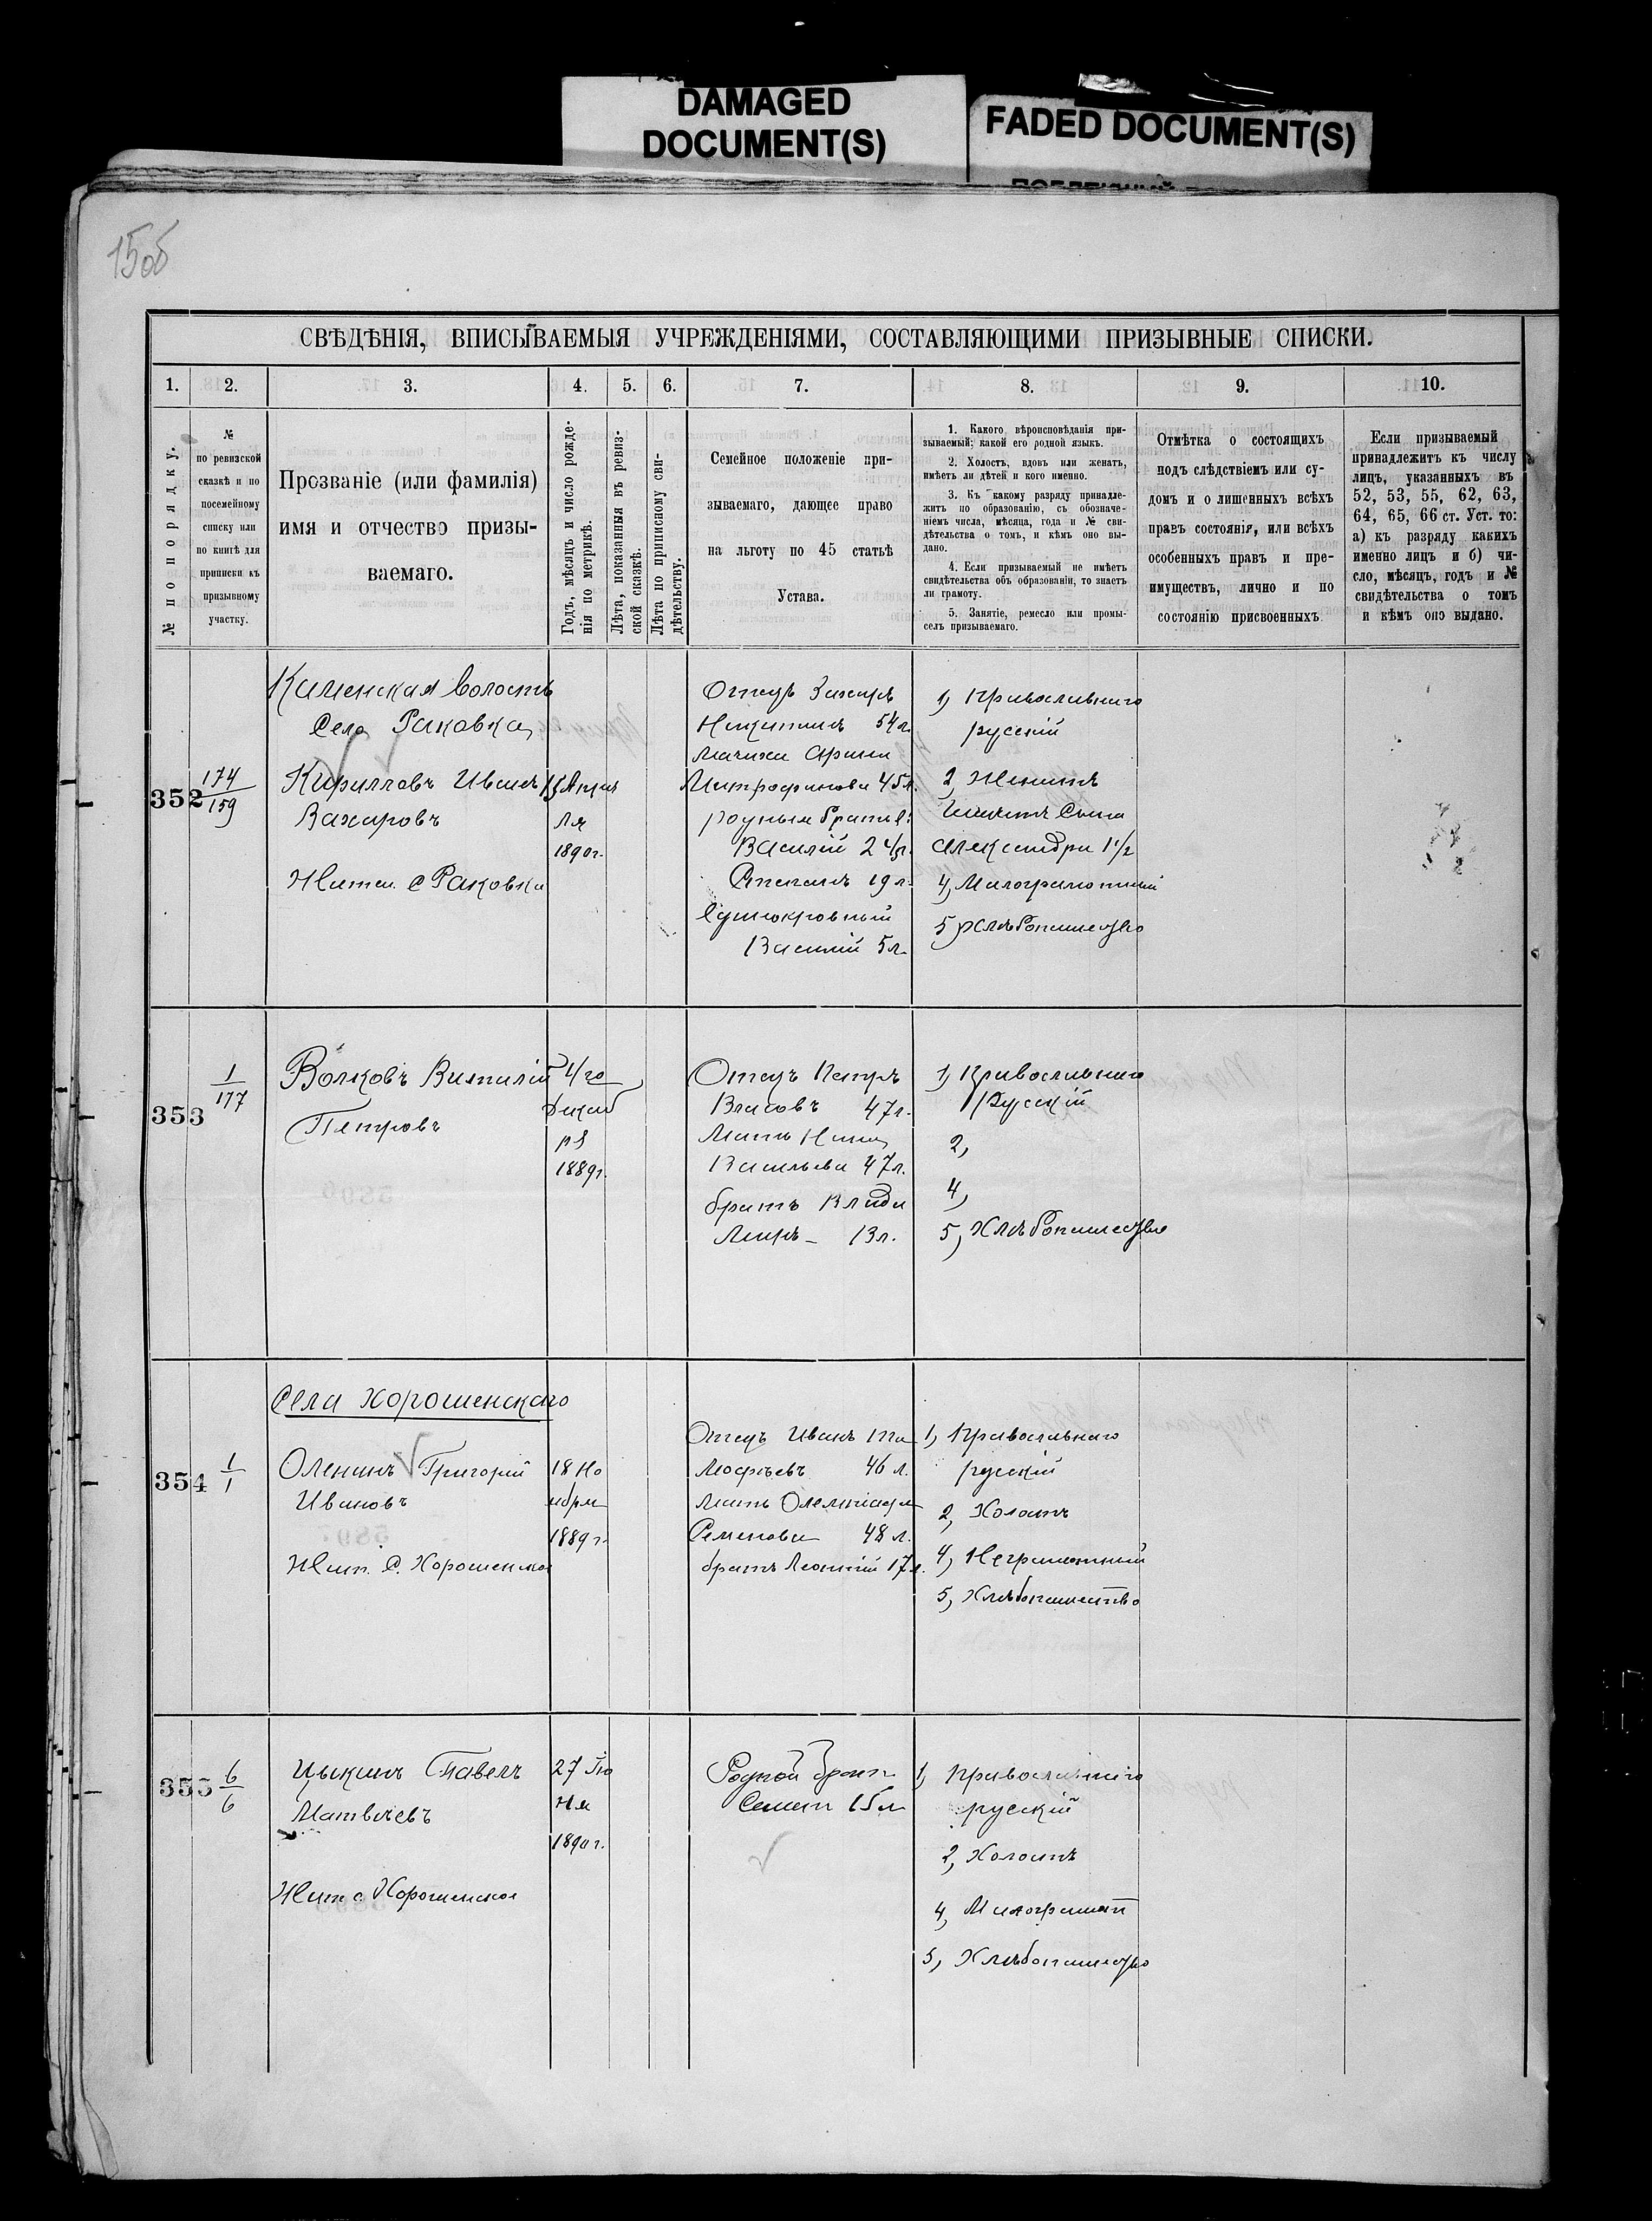 DAMAGED
DOCUMENT(S)
FADED DOCUMENT(S)
15об
СВѢДѢНІЯ, ВПИСЫВАЕМЫЯ УЧРЕЖДЕНІЯМИ, СОСТАВЛЯЮЩИМИ ПРИЗЫВНЫЕ СПИСКИ.
1. 2. 3. 4. 5. 6. 7. 8. 9. 10.
№ по порядку.
№
по ревизской
сказкѣ и по
посемейному
списку или
по книгѣ для
приписки къ
призывному
участку.
Прозваніе (или фамилія)
имя и отчество призы-
ваемаго.
Годъ, мѣсяцъ и число рожде-
нія по метрикѣ.
Лѣта, показанныя въ ревиз-
ской сказкѣ.
Лѣта по приписному сви-
дѣтельству.
Семейное положеніе при-
зываемаго, дающее право
на льготу по 45 статьѣ
Устава.
1. Какого вѣроисповѣданія при-
зываемый; какой его родной языкъ.
2. Холостъ, вдовъ или женатъ,
имѣетъ ли дѣтей и кого именно.
3. Къ какому разряду принадле-
житъ по образованію, съ обозначе-
ніемъ числа, мѣсяца, года и № сви-
дѣтельства о томъ, и кѣмъ оно вы-
дано.
4. Если призываемый не имѣетъ
свидѣтельства объ образованіи, то знаетъ
ли грамоту.
5. Занятіе, ремесло или промы-
селъ призываемаго.
Отмѣтка о состоящихъ
подъ слѣдствіемъ или су-
домъ и о лишенныхъ всѣхъ
правъ состоянія, или всѣхъ
особенныхъ правъ и пре-
имуществъ, лично и по
состоянію присвоенныхъ
Если призываемый
принадлежитъ къ числу
лицъ, указанныхъ въ
52, 53, 55, 62, 63,
64, 65, 66 ст. Уст. то:
а) къ разряду какихъ
именно лицъ и б) чи-
сло, мѣсяцъ, годъ и №
свидѣтельства о томъ
и кѣмъ оно выдано.
Каменская волость
Села Раковка
352
174
159
Кирилловъ Иванъ
Захаровъ
Жител. с Раковка
Апре
ля
1890г.
Отецъ Захаръ
Никитинъ 54л.
Мачиха Арина
Митрофанова 45л.
родные братья:
Василій 24л.
Степанъ 19л.
Единокровный
Василій 5л.
1, Православнаго
русскій
2, Женатъ
имѣетъ сына
Александра 1 1/2
4, Малограмотный
5, Хлѣбопашество
353
1
177
Волковъ Виталій
Петровъ
4го
Декаб
ря
1889г.
Отецъ Петръ
Власовъ 47л.
Мать Нина
Васильева 47л.
братъ Влади
миръ - 13л.
1, Православнаго
Русскій
2,
4,
5, Хлѣбопашество
Села Хорошенскаго
354
1
1
Оленинъ Григорій
Ивановъ
Жит. с. Хорошенское
18 Но
ября
1889г.
Отецъ Иванъ Ти
мофѣевъ 46 л.
Мать Олемпіада
Семенова 48 л.
братъ Леонтій 17л.
1, Православнаго
русскій
2, Холостъ
4, Неграмотный
5, Хлѣбопашество
355
6
6
Цыкинъ Павелъ
Матвѣевъ
Жит с Хорошенское
27 Iю
ня
1890г.
Родной братъ
Семенъ 15л
1, Православнаго
русскій
2, Холостъ
4, Малограмот
5, Хлѣбопашество